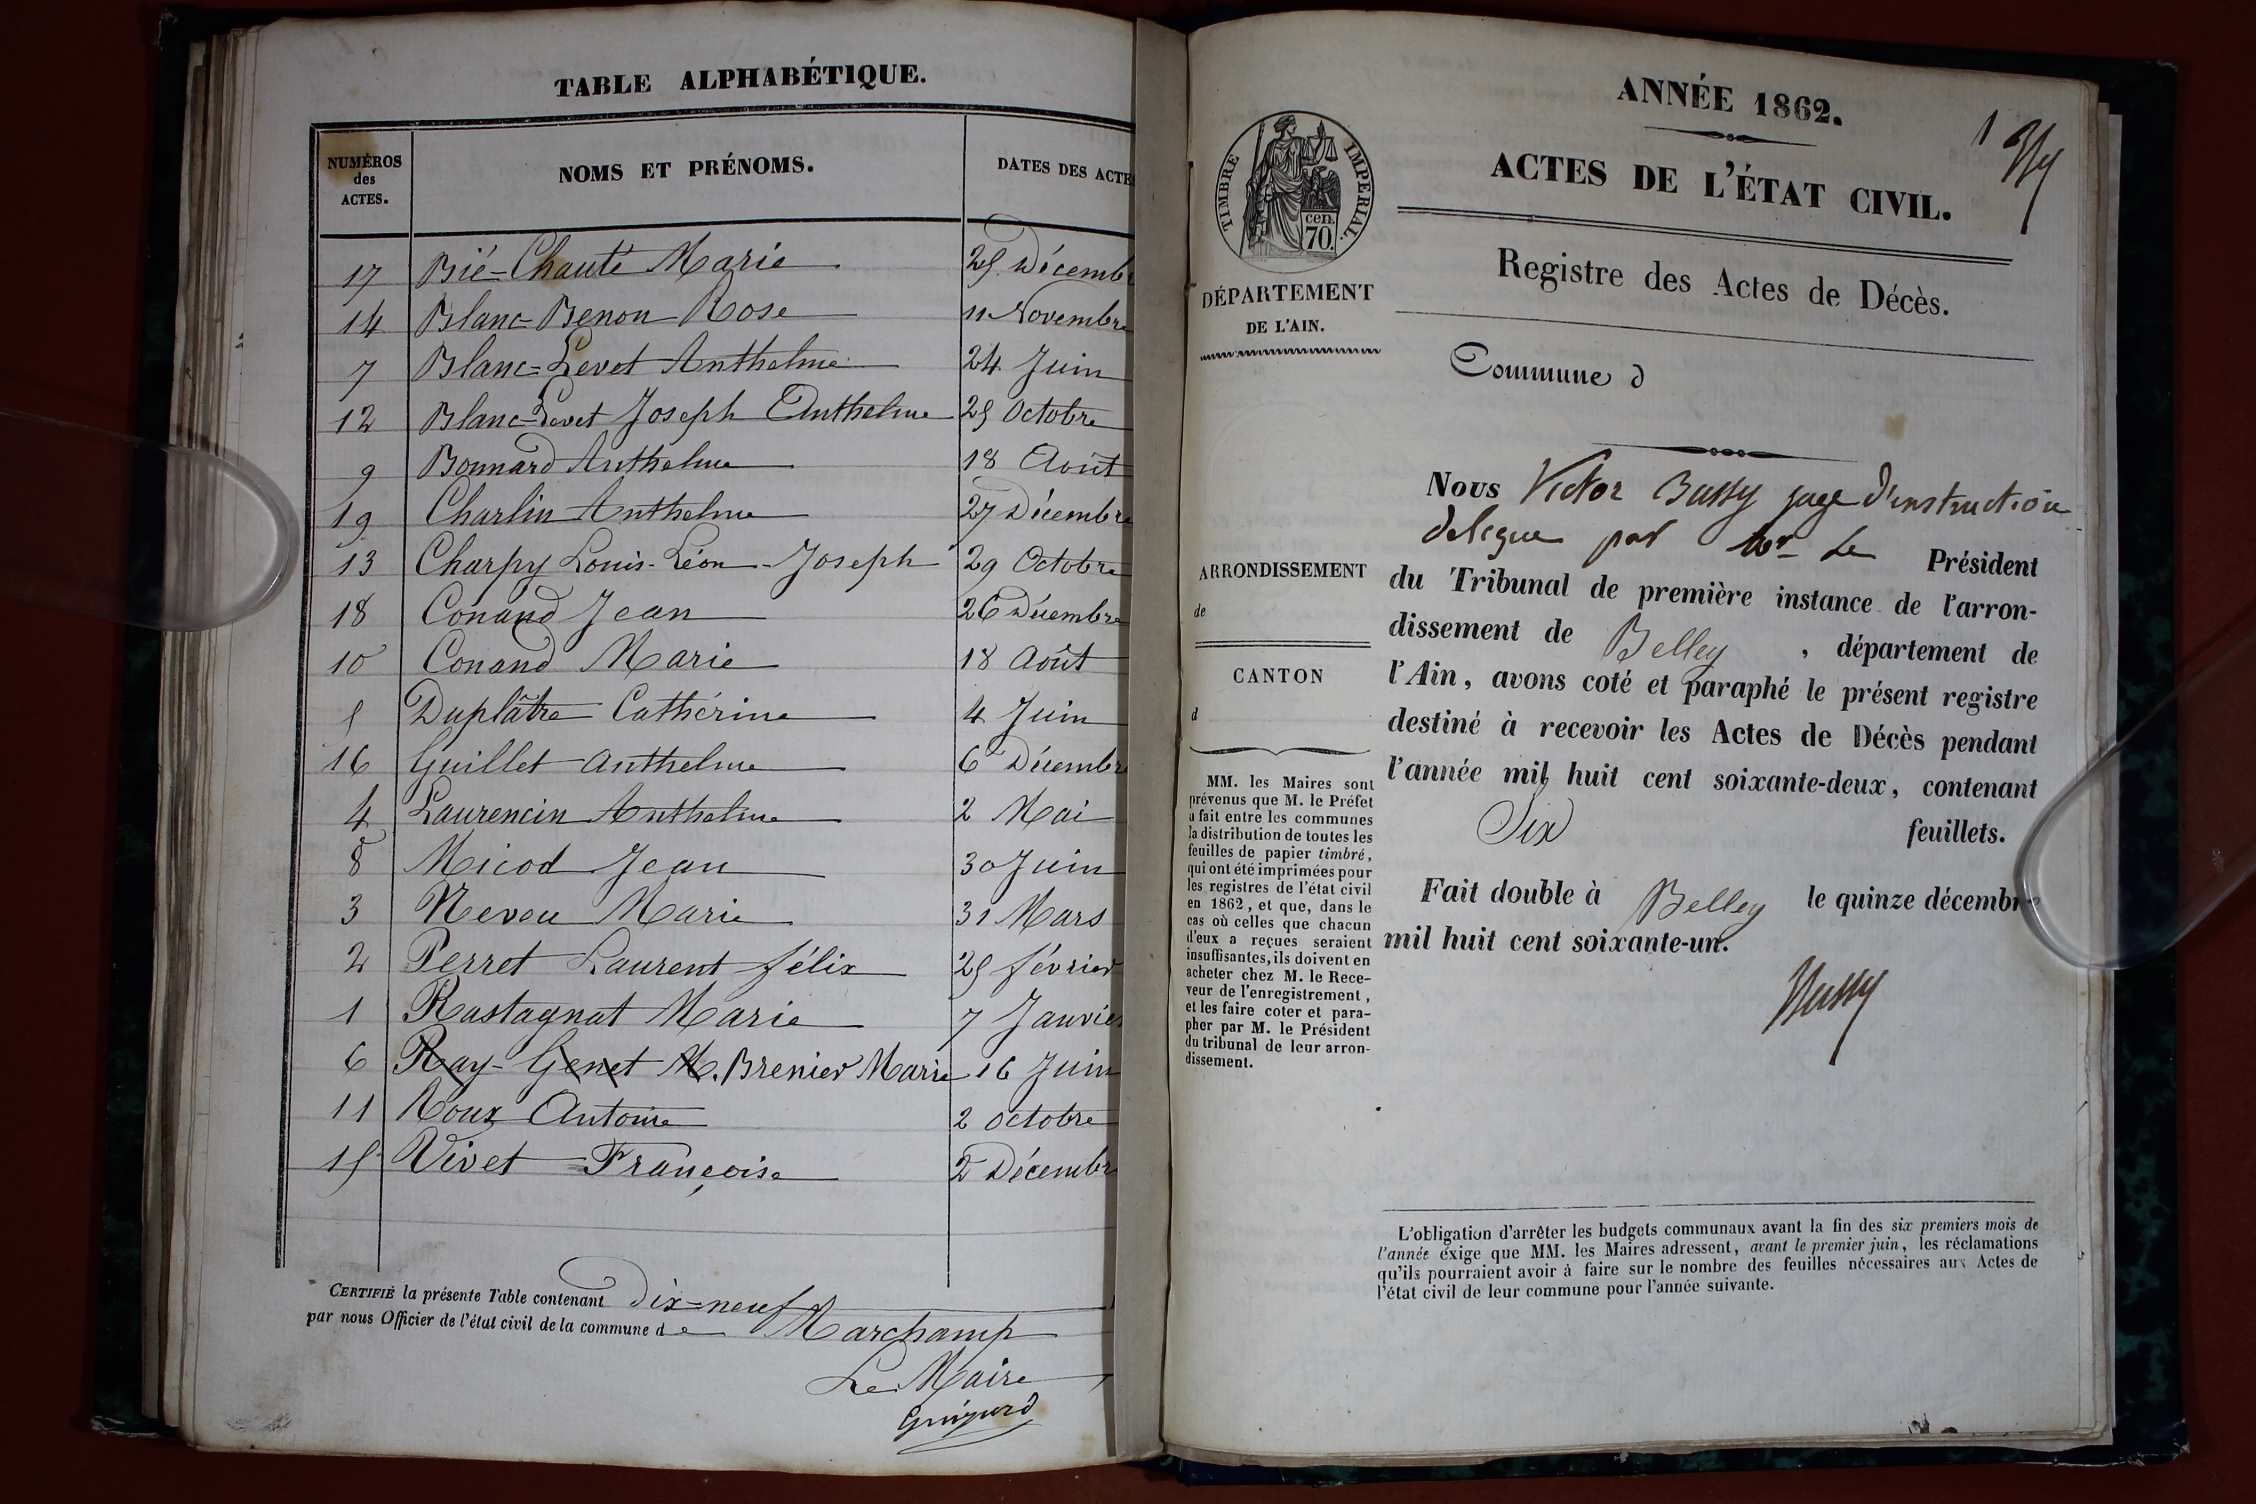 TABLE ALPHABÉTIQUE.
NUMÉROS des ACTES.
NOMS ET PRÉNOMS.
DATES DES ACTE
17 Bié=Chauté Marie 25 Décemb
14 Blanc=Benon Rose 11 Novembre
7 Blanc=Levet Anthelme 24 Juin
12 Blanc=Levet Joseph Anthelme 25 Octobre
9 Bonnard Anthelme 18 Août
19 Charlin Anthelme 27 Décembre
13 Charpy Louis-Léon-Joseph 29 Octobre
18 Conand Jean 26 Décembre
10 Conand Marie 18 Août
5 Duplâtre Cathérine 4 Juin
16 Guillet Anthelme 6 Décembr
4 Laurencin Anthelme 2 Mai
8 Micod Jean 30 Juin
3 Neveu Marie 31 Mars
2 Perret Laurent félix 25 février
1 Rastagnat Marie 7 Janvier
6 Ray-Genet M. Brenier Marie 16 Juin
11 Roux Antoine 2 octobre
15 Vivet Françoise 2 Décembr
CERTIFIÉ la présente Table contenant Dix=neuf
par nous Officier de l'état civil de la commune de Marchamp
Le Maire
Guigard
ANNÉE 1862.
1
ACTES DE L'ÉTAT CIVIL.
Registre des Actes de Décès.
TIMBRE IMPERIAL.
cen.
70.
DÉPARTEMENT
DE L'AIN.
ARRONDISSEMENT
de
CANTON
d
MM. les Maires sont
prévenus que M. le Préfet
a fait entre les communes
la distribution de toutes les
feuilles de papier timbré,
qui ont été imprimées pour
les registres de l'état civil
en 1862, et que, dans le
cas où celles que chacun
d'eux a reçues seraient
insuffisantes, ils doivent en
acheter chez M. le Rece-
veur de l'enregistrement,
et les faire coter et para-
pher par M. le Président
du tribunal de leur arron-
dissement.
Commune d
Nous Victor juge d'instruction
delegue par Mr Le Président
du Tribunal de première instance de l'arron-
dissement de Belley, département de
l'Ain, avons coté et paraphé le présent registre
destiné à recevoir les Actes de Décès pendant
l'année mil huit cent soixante-deux, contenant
Six feuillets.
Fait double à Belley le quinze décembre
mil huit cent soixante-un.
L'obligation d'arrêter les budgets communaux avant la fin des six premiers mois de
l'année exige que MM. les Maires adressent, avant le premier juin, les réclamations
qu'ils pourraient avoir à faire sur le nombre des feuilles nécessaires aux Actes de
l'état civil de leur commune pour l'année suivante.